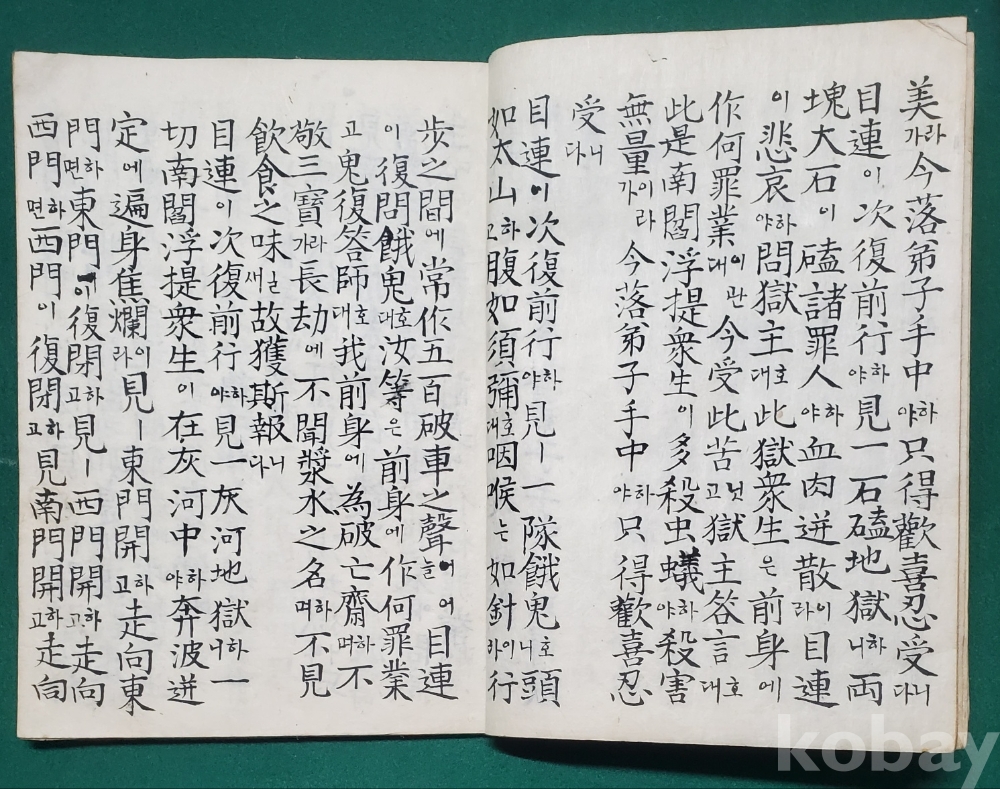 美가라今落弟子手中야하只得歡喜忍受다니
目連이次復前行야하見一石磕地獄니하両
塊大石이磕諸罪人야하血肉迸散라이目連
이悲哀야하問獄主대호此獄衆生은前身에
作何罪業대이관今受此苦고닛獄主答言대호
此是南閻浮提衆生이多殺虫蟻야하殺害
無量가이라今落弟子手中야하只得歡喜忍
受다니
目連이次復前行야하見一隊餓鬼니호頭
如太山고하腹如須彌대호咽喉는如針이行
步之間에常作五百破車之聲늘어어目連
이復問餓鬼대호汝等은前身에作何罪業
고鬼復答師대호我前身에為破亡齋며하不
敬三寶가라長劫에不聞漿水之名며하不見
飲食之味새글故獲斯報다니
目連이次復前行야하見一灰河地獄니하一
切南閻浮提衆生이在灰河中야하奔波迸
定에遍身焦爛라이見東門開고하走向東
門면하東門에復閉고하見西門開고하走向
西門면하西門이復閉고하見南門開고하走向
kobay